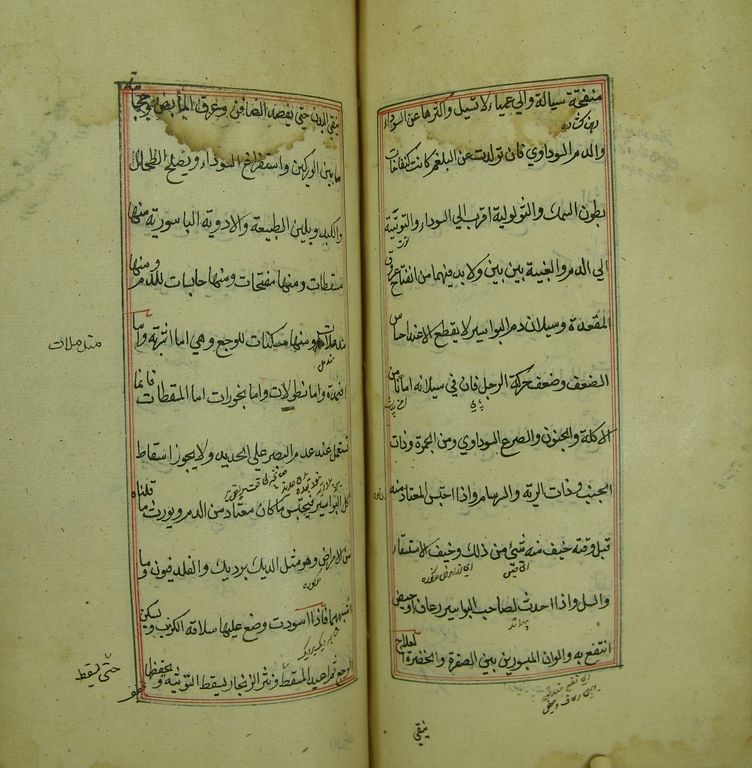 منفتحة سيالة والى عمياء لا تسيل واكثرها عن السوداء
والدم السوداوي فان تولدت عن البلغم كانت كنفاخات
بطون السمك والثولولية اقرب الى السوداء والتوتية
الى الدم والعنبية بين بين ولا بد فيهما من انفتاح عرق
المقعدة وسيلان دم البواسير لا يقطع الا عند احساس
الضعف وضعف حركة الرجل فان في سيلانه امانا من
الاكلة والجنون والصرع السوداوي ومن الحمرة وذات
الجنب وذات الرية والسرسام واذا احتبس المعتاد منه
قبل وقته خيف منه شئ من ذلك وخيف الاستسقاء
والسل واذا احدث لصاحب البواسير رعاف او حيض
انتفع به والوان المبسورين بين الصفرة والخضرة العلاج
ينقى
ينقى البدن حتى بفصد الصافن وعرق المابض وحجامة
ما بين الوركين واستفراغ السوداء ويصلح الطحال
والكبد ويلين الطبيعة والادوية الباسورية منها
مسقطات ومنها مفتحات ومنها حابسات للدم ومنها
ومنها مسكنات للوجع وهي اما اشربة واما
مندملات
اضمدة واما نطولات واما بخورات اما المسقطات فانما
تستعمل عند عدم الصبر على الحديد ولا يجوز اسقاط
كل البواسير فيحتبس ما كان معتادا من الدم ويورث ما قلناه
من الامراض وهو مثل الديك برديك والفلدفيون وما
اشبههما فاذا اسودت وضع عليها سلاقة الكرنب وليسكن
الوجع ثم اعيد المسقط ونثر الزنجار ليسقط التوتية ويجففها
حتى يسقط